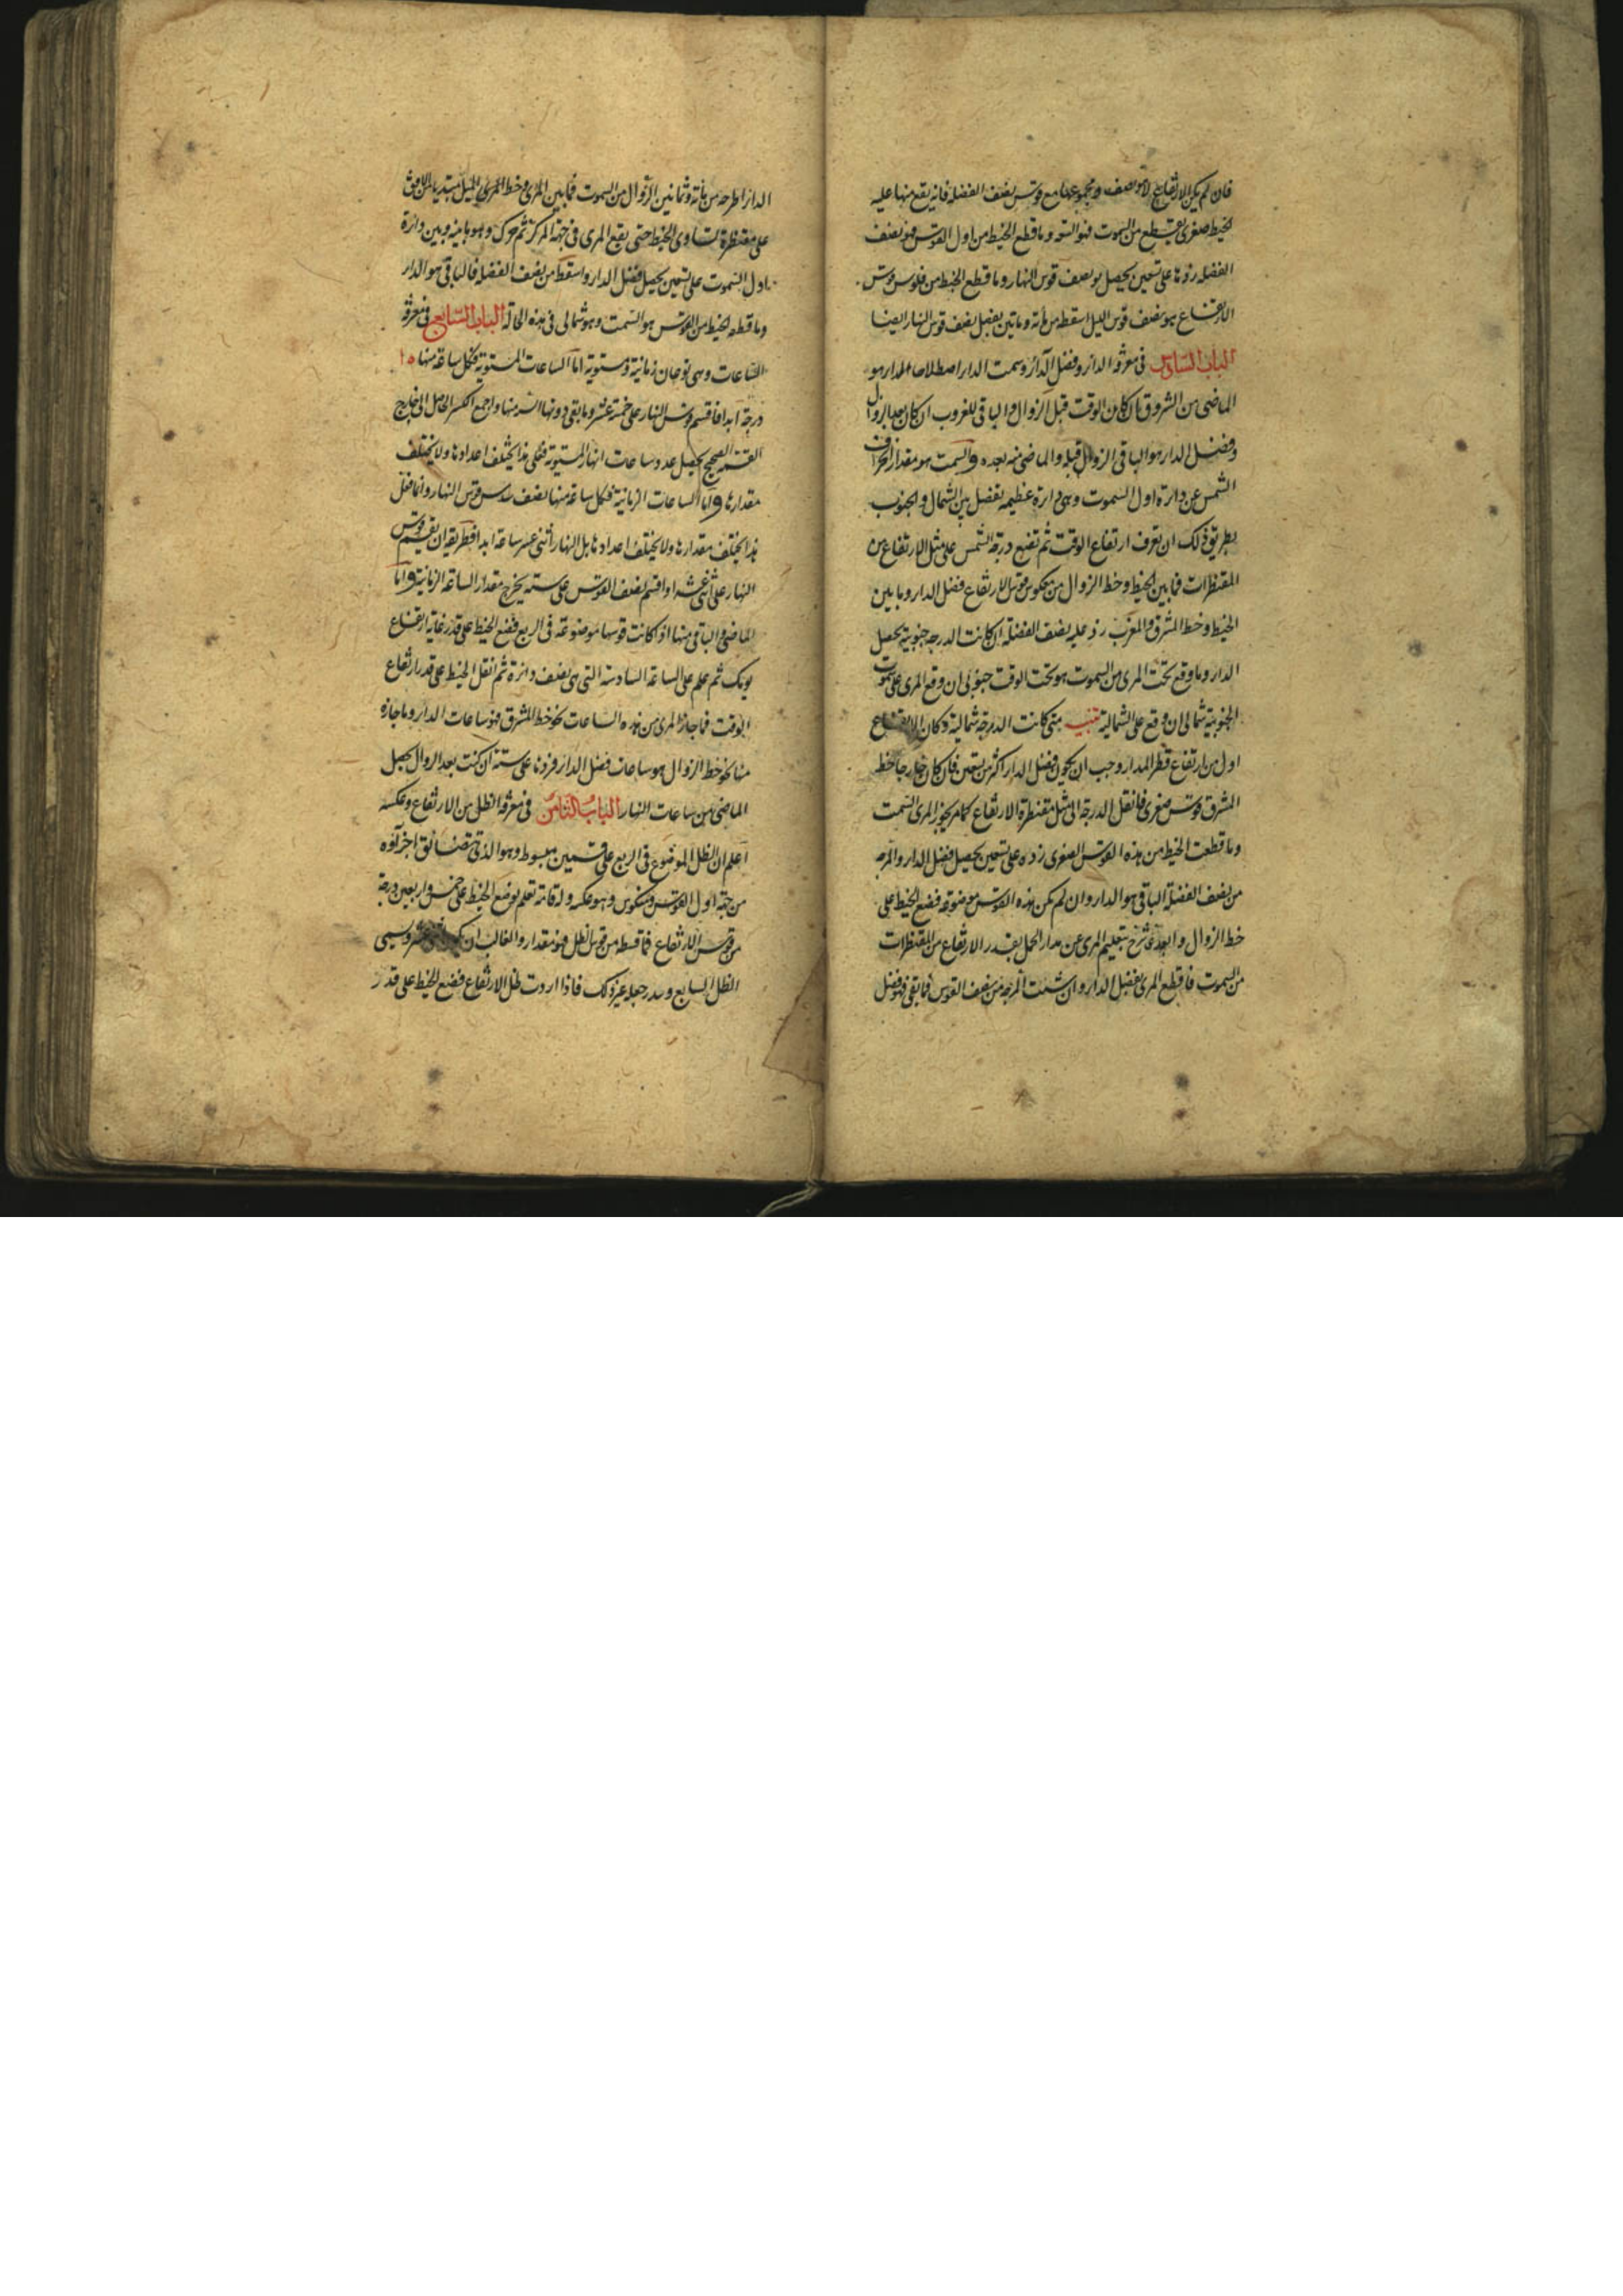 فان لم يكن الارتفاع لا نصف ومجموعها مع قوس نصف الفضلة فانه يقع منها عليه
الخيط صغرى يقطع من السموت فهو السعة وما قطع الخيط من اول القوس فهو نصف
الفضلة زدها على تسعين يحصل نصف قوس النهار وما قطع الخيط من قوس
الارتفاع هو نصف قوس الليل اسقطه من مائة وثمانين يفضل نصف قوس النهار ايضا
الباب السادس في معرفة الدائر وفضل الدائر وسمت الدائر اصطلاحا المدار هو
الماضي من الشروق ان كان الوقت قبل الزوال والباقي للغروب ان كان بعد الزوال
وفضل الدائر هو الباقي الزوال قبله والماضي منه بعده والسمت هو مقدار انحراف
الشمس عن دائرة اول السموت وهي دائرة عظيمة تفصل بين الشمال والجنوب
بطريق ذلك ان تعرف ارتفاع الوقت ثم تضع درجة الشمس على مثل الارتفاع من
المقنطرات فما بين الخيط وخط الزوال من معكوس قوس الارتفاع فضل الدائر وما بين
الخيط وخط المشرق والمغرب زد عليه نصف الفضلة ان كانت الدرجة جنوبية يحصل
الدائر وما وقع تحت المرى من السموت هو تحت الوقت جنوبي ان وقع المرى على سموت
الجنوبية شمالي ان وقع على الشمالية تنبيه متى كانت الدرجة شمالية وكان الارتفاع
اول من ارتفاع قطر المدار وجب ان يكون فضل الدائر اكثر من تسعين فان كان خارجا خط
المشرق قوس صغرى فانقل الدرجة الى مثل مقنطرة الارتفاع كما مر يحوز المرى السمت
وما قطعت الخيط من هذه القوس الصغرى زده على تسعين يحصل فضل الدائر والمرجه
من نصف الفضلة الباقي هو الدائر وان لم تكن هذه القوس موضوعة فضع الخيط على
خط الزوال وابعد بتعليم المرى عن مدار الحمل بقدر الارتفاع من المقنطرات
من السموت فما قطع المرى يفضل الدائر وان شئت من نصف القوس فما بقى فهو فضل
الدائر اطرحه من مائة وثمانين الزوال من السموت فما بين المرى وخط الميل مبتديا من الافق
على مقنطرة تساوى الخيط حتى يقع المرى في جهة المركز ثم حرك وهو ما بينه وبين دائرة
اول السموت على تسعين يحصل فضل الدائر واسقط من نصف الفضلة فالباقي هو الدائر
وما قطعه الخيط من القوس هو السمت وهو شمالي في هذه الحالة الباب السابع في معرفة
الساعات وهي نوعان زمانية ومستوية اما الساعات المستوية فكل ساعة منها ١٥
درجة ابدا فاقسم قوس النهار على خمسة عشر وما بقى دونها انسبه منها واجمع الكسر الحاصل الى خارج
القسم الصحيح يحصل عدد ساعات النهار المستوية فعلى هذا يختلف اعدادها ولا يختلف
مقدارها واما الساعات الزمانية فكل ساعة منها نصف سدس قوس النهار وانما فعل
هذا يختلف مقدارها ولا يختلف اعدادها بل النهار اثنى عشر ساعة ابدا فطريقه ان يقسم قوس
النهار على اثنى عشر او اقسم نصف القوس على ستة يخرج مقدار الساعة الزمانية واما
الماضي والباقي منها اذ كانت قوسها موضوعة في الربع فضع الخيط على قدر غاية ارتفاع
يومك ثم علم على الساعة السادسة التي هي نصف دائرة ثم انقل الخيط على قدر ارتفاع
الوقت فما جاز المرى من هذه الساعات نحو خط المشرق فهو ساعات الدائر وما جازه
منها نحو خط الزوال هو ساعات فضل الدائر فزدها على ستة ان كنت بعد الزوال يحصل
الماضي من ساعات النهار الباب الثامن في معرفة الظل من الارتفاع وعكسه
اعلم ان الظل الموضوع في الربع على قسمين مبسوط وهو الذي تتضائق اجزاؤه
من جهة اول القوس ومنكوس وهو عكسه ولقامة تعلم بوضع الخيط على خمس واربعين درجة
من قوس الارتفاع فما قسطه من قوس الظل فهو مقدار والغالب ان عشر ويسمى
الظل السابع غير ذلك فاذا اردت ظل الارتفاع فضع الخيط على قدر